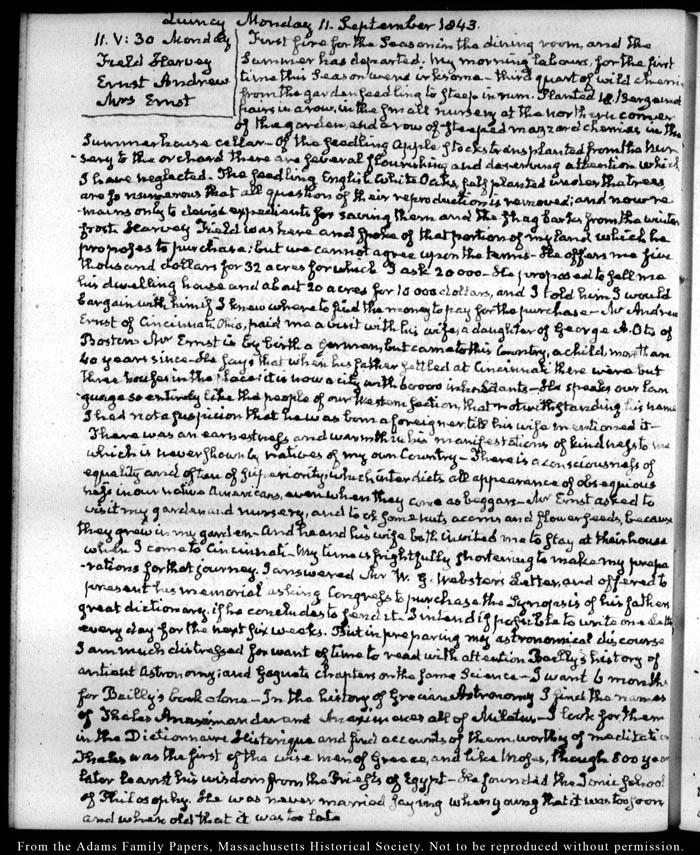 Quincy Monday 11. September 1843.
11. V:30 Monday
Field Harvey
Ernst Andrew
Mrs Ernst
First fire for the Season in the dining room, and the
Summer has departed. My morning labours, for the first
time this Season were irksome - third quart of wild cherries
from the garden feedling to steep in rum. Planted 18 Bergamot
pairs in a row, in the small nursery at the northern corner
of the garden, and a row of steeped mazzard cherries in the
Summer house cellar - Of the seedling Apple stocks transplanted from the Nur-
-sery to the orchard there are several flourishing and deserving attention which
I have neglected. The seedling English White Oaks, self planted under the trees
are so numerous that all question of their reproduction is removed; and now re-
-mains only to devise expedients for saving them and the Shagbarks from the winter
frost. Harvey Field was here and spoke of that portion of my land which he
proposes to purchase; but we cannot agree upon the terms - He offers me five
thousand dollars for 32 acres for which I ask 20000 - He proposed to sell me
his dwelling house and about 20 acres for 10 000 dollars, and I told him I would
bargain with him if I knew where to find the money to pay for the purchase - Mr Andrew
Ernst of Cincinnati Ohio, paid me a visit with his wife, a daughter of George A. Otis of
Boston. Mr Ernst is by birth a German, but came to this Country, a child, more than
40 years since - He says that when his father settled at Cincinnati there were but
three houses in the place; it is now a city with 60000 inhabitants - He speaks our lan
-guage so entirely like the people of our Western section, that notwithstanding his name
I had not a suspicion that he was born a foreigner till his wife mentioned it -
There was an earnestness and warmth in his manifestations of kindness to me
which is never shown by natives of my own Country - There is a consciousness of
equality and often of superiority which interdicts all appearance of obsequious
ness in our native Americans, even when they come as beggars - Mr Ernst asked to
visit my garden and nursery, and took some nuts acorns and flower seeds, because
they grew in my garden - And he and his wife both invited me to stay at their house
when I come to Cincinnati - My time is frightfully shortening to make my prepa
-rations for that journey. I answered Mr W. G. Websters Letter, and offered to
present his memorial asking Congress to purchase the Synopsis of his father's
great dictionary, if he concludes to send it. I intend if possible to write one Letter
every day for the next six weeks. But in preparing my astronomical discourse
I am much distressed for want of time to read with attention Bailly's history of
antient Astronomy; and Goguets chapters on the same Science - I want 6 months
for Bailly's book alone - In the history of Grecian Astronomy I find the names
of Thales Anaximander and Anaximenes all of Miletus - I look for them
in the Dictionnaire Historique and find accounts of them, worthy of meditation
Thales was the first of the wise men of Greece, and like Moses, though 800 years
later learnt his wisdom from the Priests of Egypt - He founded the Ionic School
of Philosophy. He was never married saying when young that it was too soon
and when old that it was too late
From the Adams Family Papers, Massachusetts Historical Society. Not to be reproduced without permission.